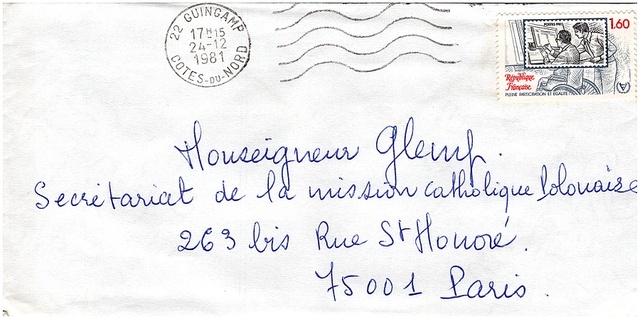 22 GUINGAMP
17H15
24-12
1981
COTES-DU-NORD
1.60
République
Française
PLEINE PARTICIPATION ET EGALITE
Monseigneur Glemp.
Secrétariat de la mission catholique Polonaise
263 bis Rue St Honoré.
75001 Paris.